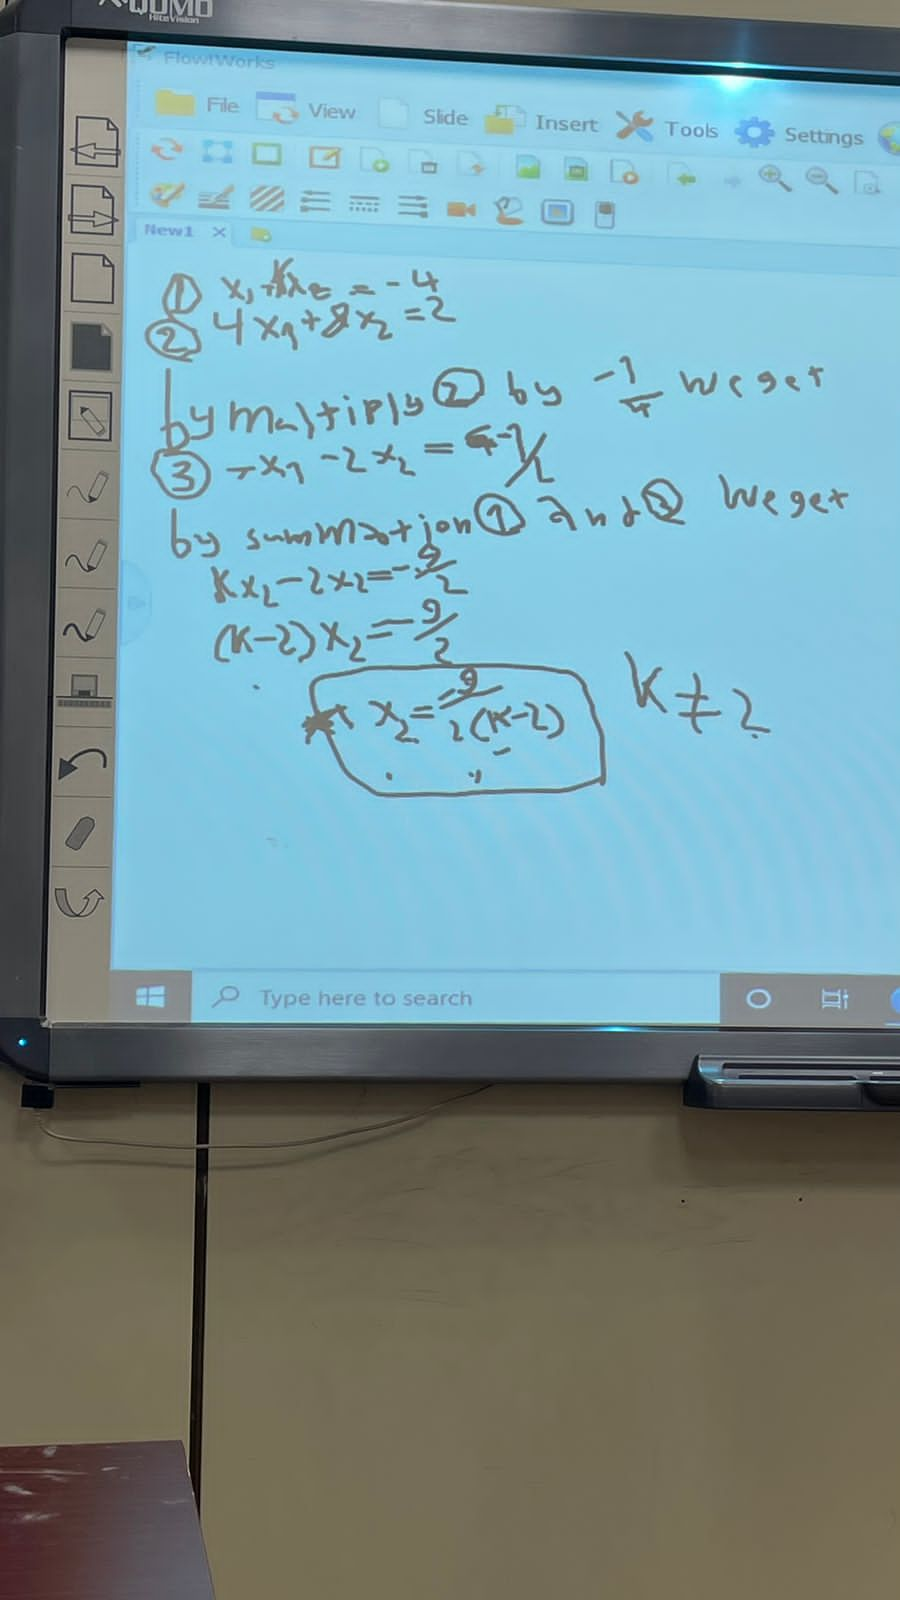 QOMO
HiteVision
Flow!Works
File View Slide Insert Tools Settings
New1
① x₁ + kx₂ = -4
② 4x₁ + 8x₂ = 2
by multiply ② by -1/4 we get
③ -x₁ - 2x₂ = -1/2
by summation ① and ③ we get
kx₂ - 2x₂ = -9/2
(k-2) x₂ = -9/2
x₂ = -9/2(k-2)
k ≠ 2
Type here to search